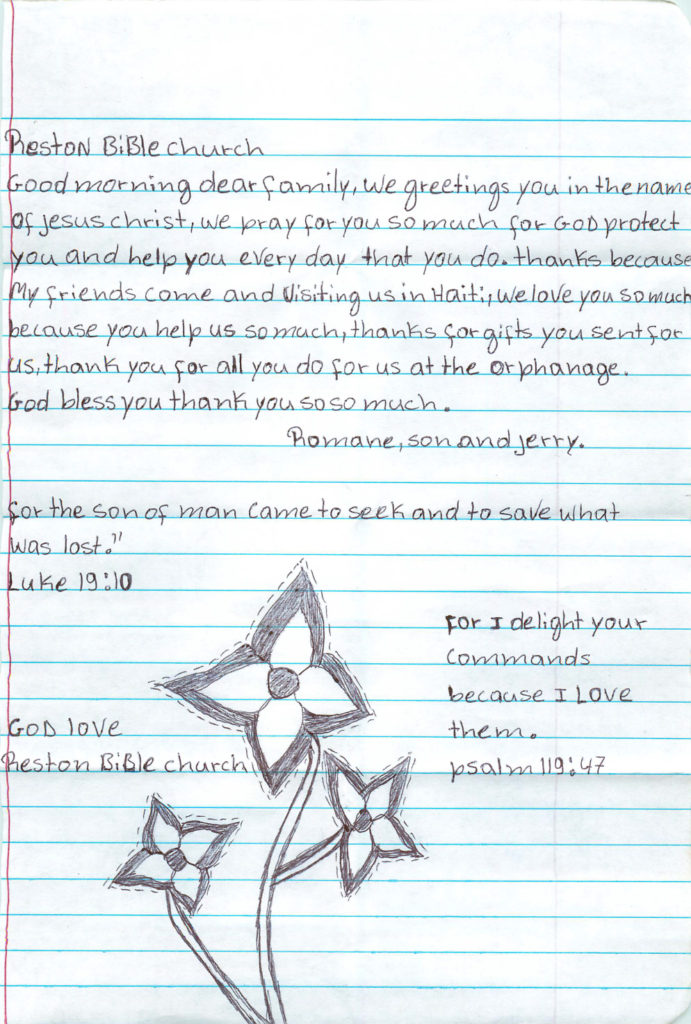 Reston BiBle church
Good morning dear family, we greetings you in the name
of jesus christ, we pray for you so much for GOD protect
you and help you every day that you do. thanks because
My friends come and Visiting us in Haiti; we love you so much
because you help us so much, thanks for gifts you sent for
us, thank you for all you do for us at the orphanage.
God bless you thank you so so much.
Romane, son and jerry.
for the son of man came to seek and to save what
was lost."
Luke 19:10
for I delight your
commands
because I LOVE
them.
psalm 119:47
GOD love
Reston BiBle church